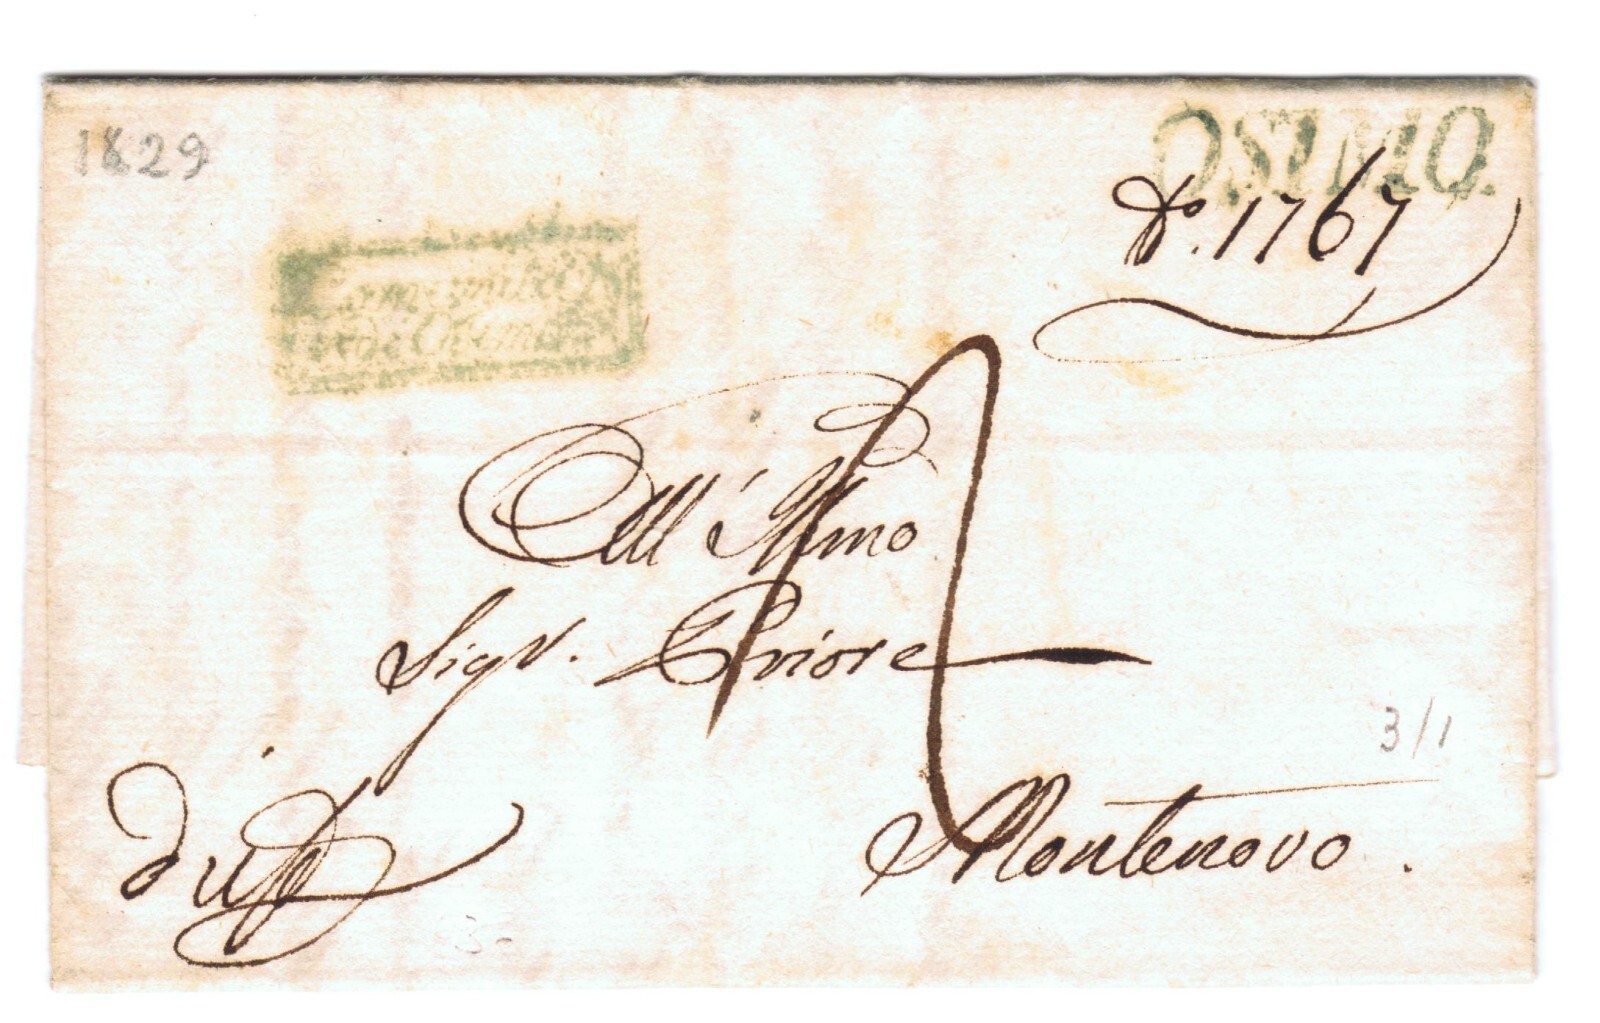 1829
OSIMO.
Nº. 1767
All' Illmo
Sigr. Priore
3/1
Montenovo.
3-